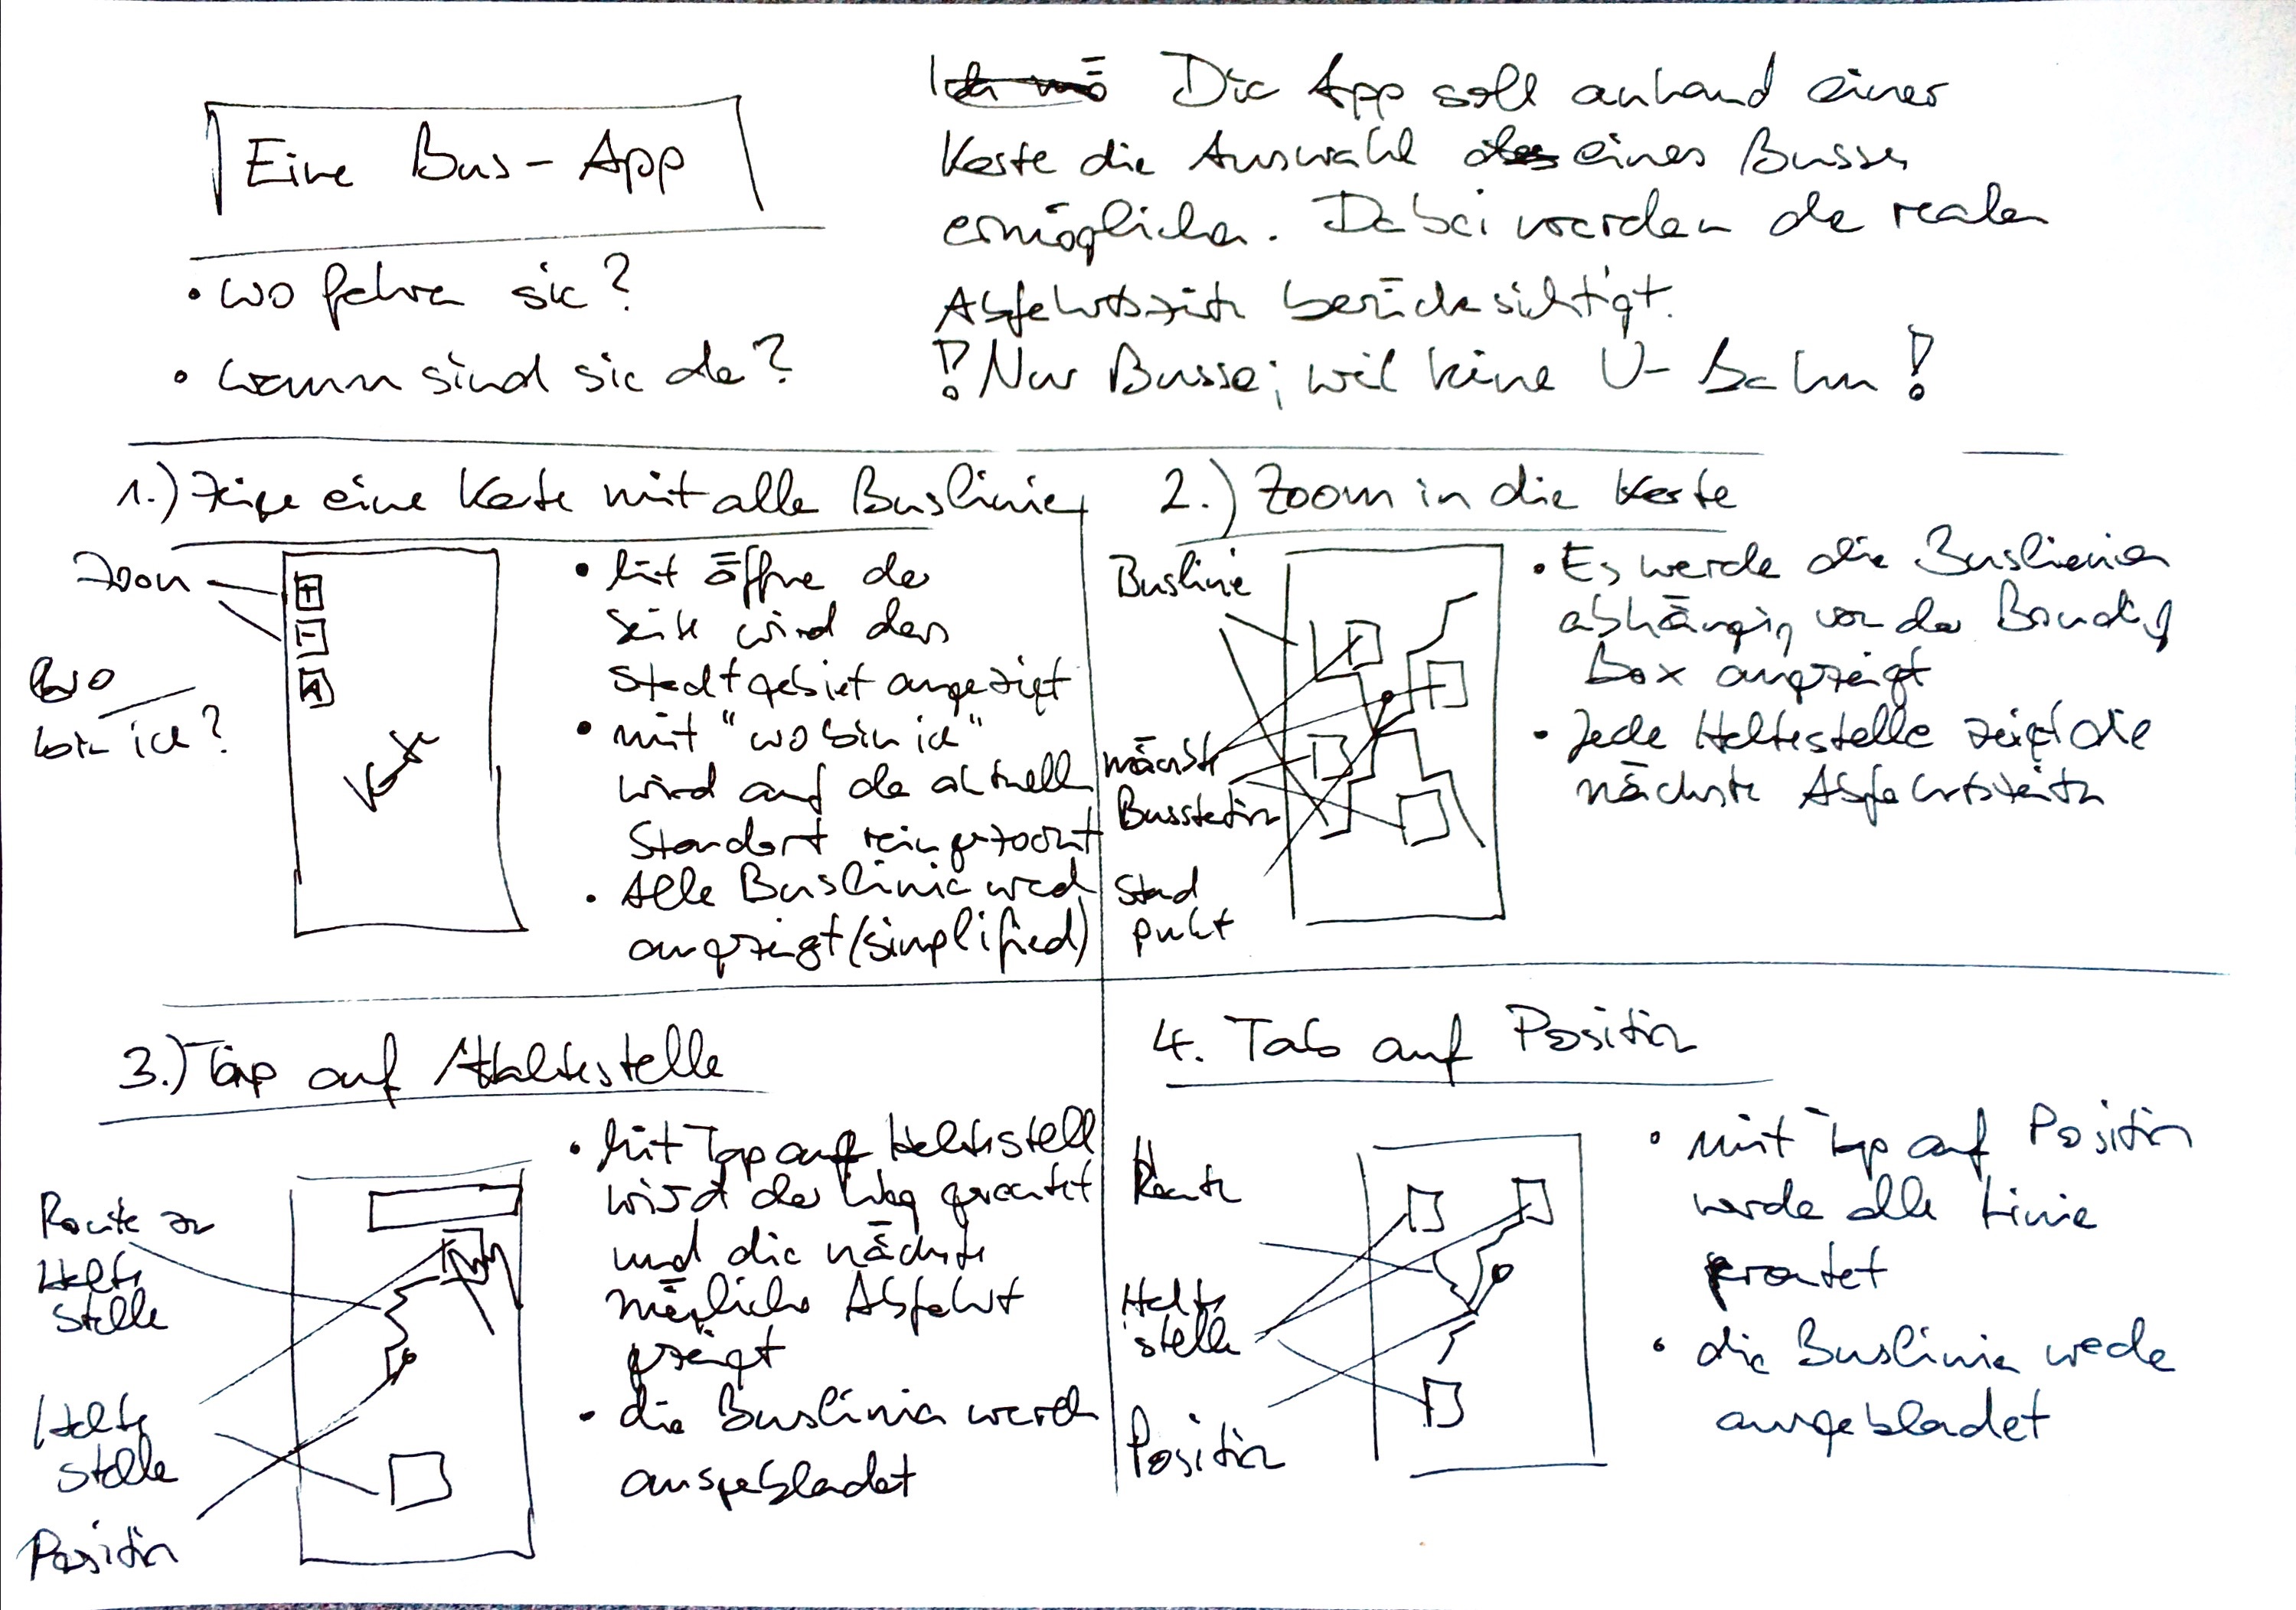 Eine Bus-App
• wo fahren sie?
• wann sind sie da?
Die App soll anhand einer
Karte die Auswahl eines Busses
ermöglichen. Dabei werden die realen
Abfahrtszeiten berücksichtigt.
! Nur Busse; weil keine U-Bahn!
1.) Zeige eine Karte mit alle Buslinien
Zoom
+
-
Wo
bin ich?
• Mit öffne der
Seite wird das
Stadtgebiet angezeigt
• mit "wo bin ich"
wird auf de aktuell
Standort reingezoomt
• Alle Buslinie werd
angezeigt (simplified)
2.) Zoom in die Karte
Buslinie
nächste
Busstation
Stand
punkt
• Es werde die Buslienien
abhängig von der Bounding
Box angezeigt
• Jede Haltestelle zeigt die
nächste Abfahrtszeiten
3.) Tap auf Haltestelle
Route zu
Halte
stelle
Halte
stelle
Position
• Mit Tap auf Haltestell
wird der Weg geroutet
und die nächste
mögliche Abfahrt
gezeigt
• die Buslinien werden
ausgeblendet
4. Tab auf Position
Route
Halte
stelle
Position
• mit Tap auf Position
werde alle Linie
geroutet
• die Buslinie werde
ausgeblendet